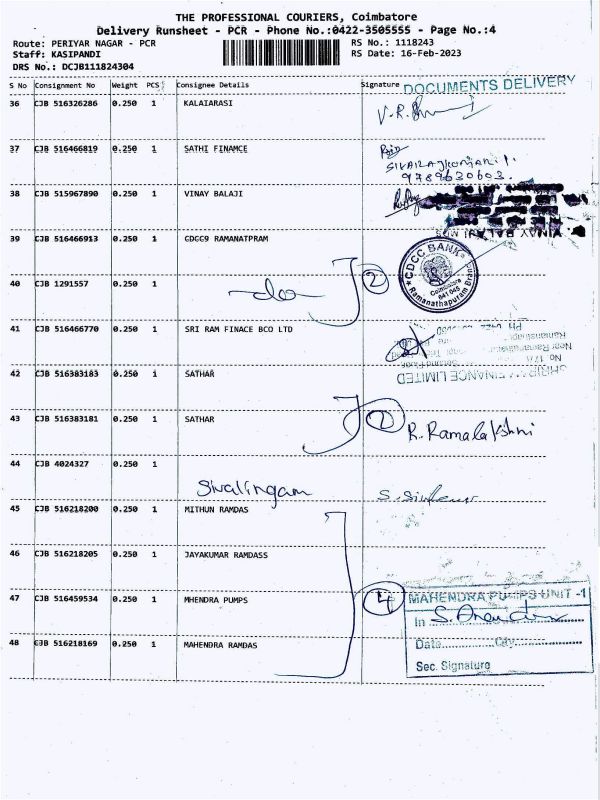 THE PROFESSIONAL COURIERS, Coimbatore
Delivery Runsheet - PCR - Phone No.:0422-3505555 - Page No.:4
Route: PERIYAR NAGAR - PCR RS No.: 1118243
Staff: KASIPANDI RS Date: 16-Feb-2023
DRS No.: DCJB111824304
S No Consignment No Weight PCS Consignee Details Signature DOCUMENTS DELIVERY
36 CJB 516326286 0.250 1 KALAIARASI
37 CJB 516466819 0.250 1 SATHI FINAMCE
9789630603.
38 CJB 515967890 0.250 1 VINAY BALAJI
VINAY BALAJI
39 CJB 516466913 0.250 1 CDCC9 RAMANATPRAM
CDCC BANK
Coimbatore
641 045
Ramanathapuram Branch
40 CJB 1291557 0.250 1 2
41 CJB 516466770 0.250 1 SRI RAM FINACE BCO LTD
SHRIRAM FINANCE LIMITED
42 CJB 516383183 0.250 1 SATHAR
43 CJB 516383181 0.250 1 SATHAR 2 R. Ramalakshmi
44 CJB 4024327 0.250 1
Sivalingam
45 CJB 516218200 0.250 1 MITHUN RAMDAS
46 CJB 516218205 0.250 1 JAYAKUMAR RAMDASS
47 CJB 516459534 0.250 1 MHENDRA PUMPS 4 MAHENDRA PUMPS UNIT -1
In
48 CJB 516218169 0.250 1 MAHENDRA RAMDAS Date
Sec. Signature